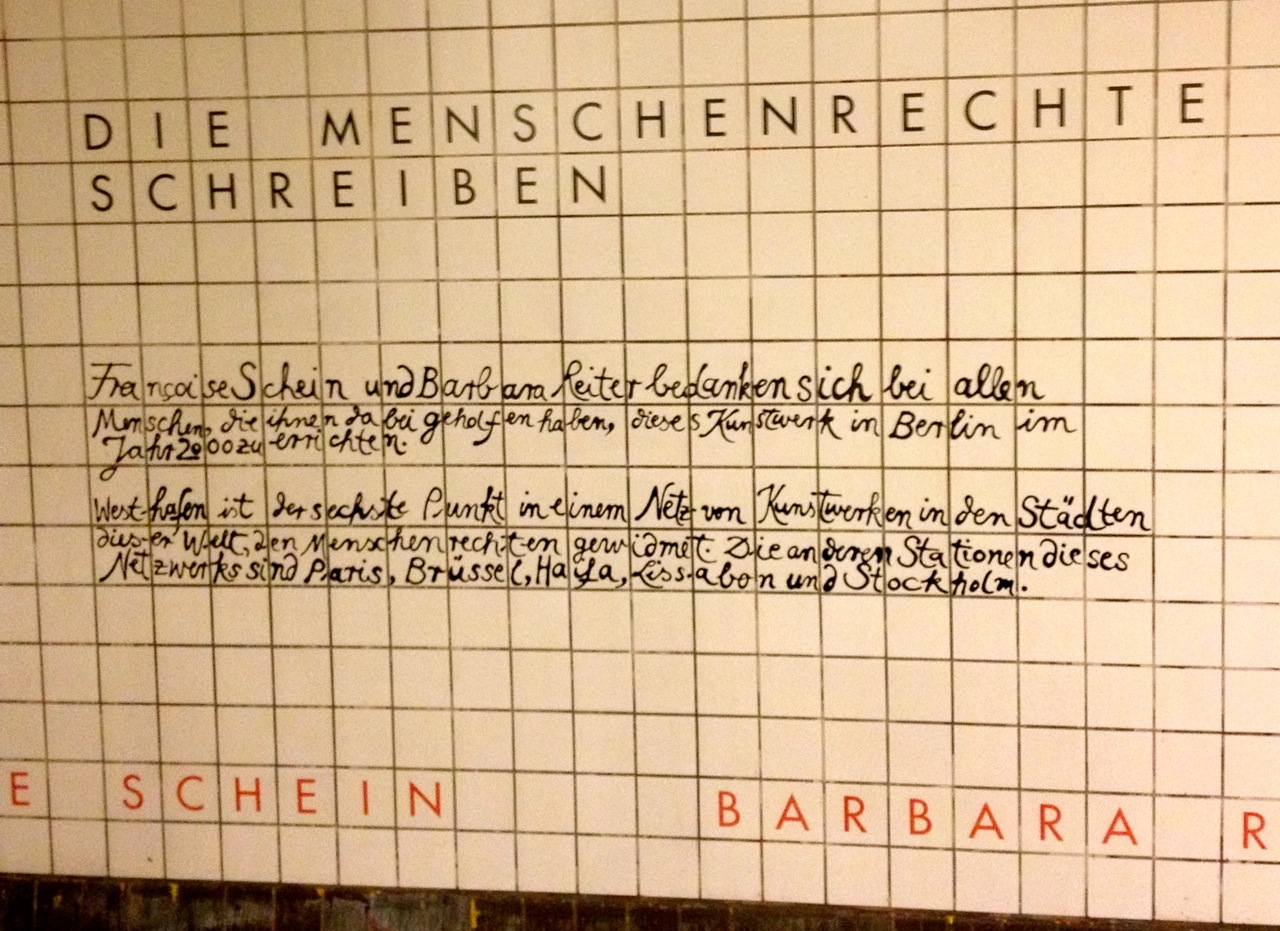 DIE MENSCHENRECHTE
SCHREIBEN
Françoise Schein und Barbara Reiter bedanken sich bei allen
Menschen, die ihnen dabei geholfen haben, dieses Kunstwerk in Berlin im
Jahr 2000 zu errichten.
Westhafen ist der sechste Punkt in einem Netz von Kunstwerken in den Städten
dieser Welt, den Menschenrechten gewidmet. Die anderen Stationen dieses
Netzwerks sind Paris, Brüssel, Haifa, Lissabon und Stockholm.
E SCHEIN BARBARA R